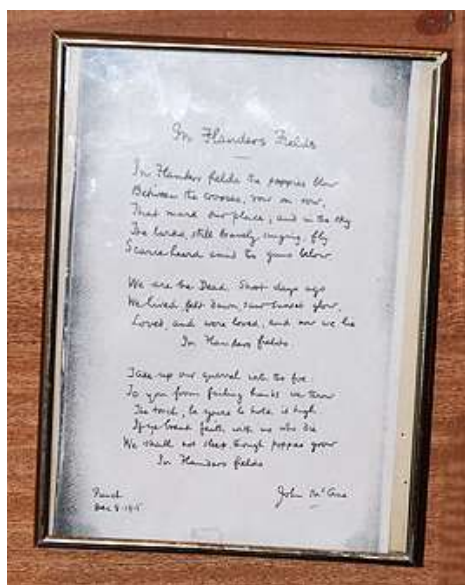 In Flanders Fields
In Flanders fields the poppies blow
Between the crosses, row on row,
That mark our place; and in the sky
The larks, still bravely singing, fly
Scarce heard amid the guns below.
We are the Dead. Short days ago
We lived, felt dawn, saw sunset glow,
Loved, and were loved, and now we lie
In Flanders fields.
Take up our quarrel with the foe:
To you from failing hands we throw
The torch; be yours to hold it high.
If ye break faith with us who die
We shall not sleep, though poppies grow
In Flanders fields
Punch
Dec 8 · 1915
John McCrae